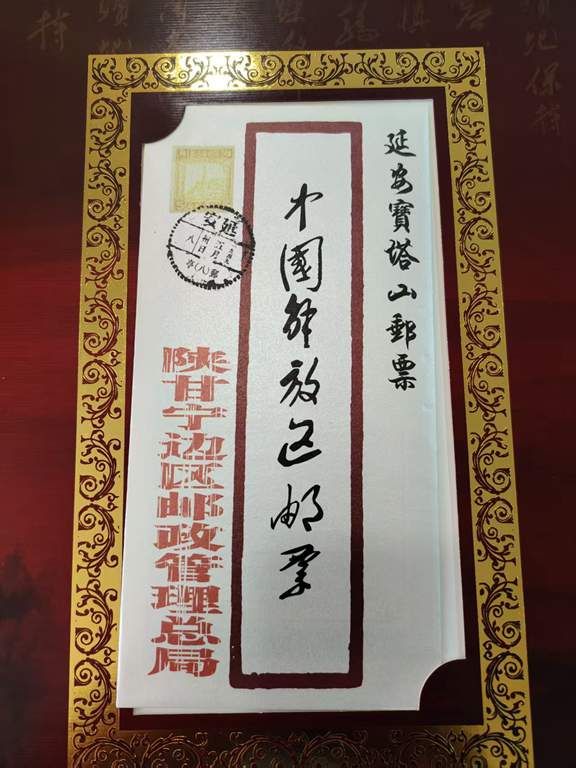 延安寶塔山郵票
中國解放区邮票
陕甘宁边区邮政管理总局
延安
郵(八)亭